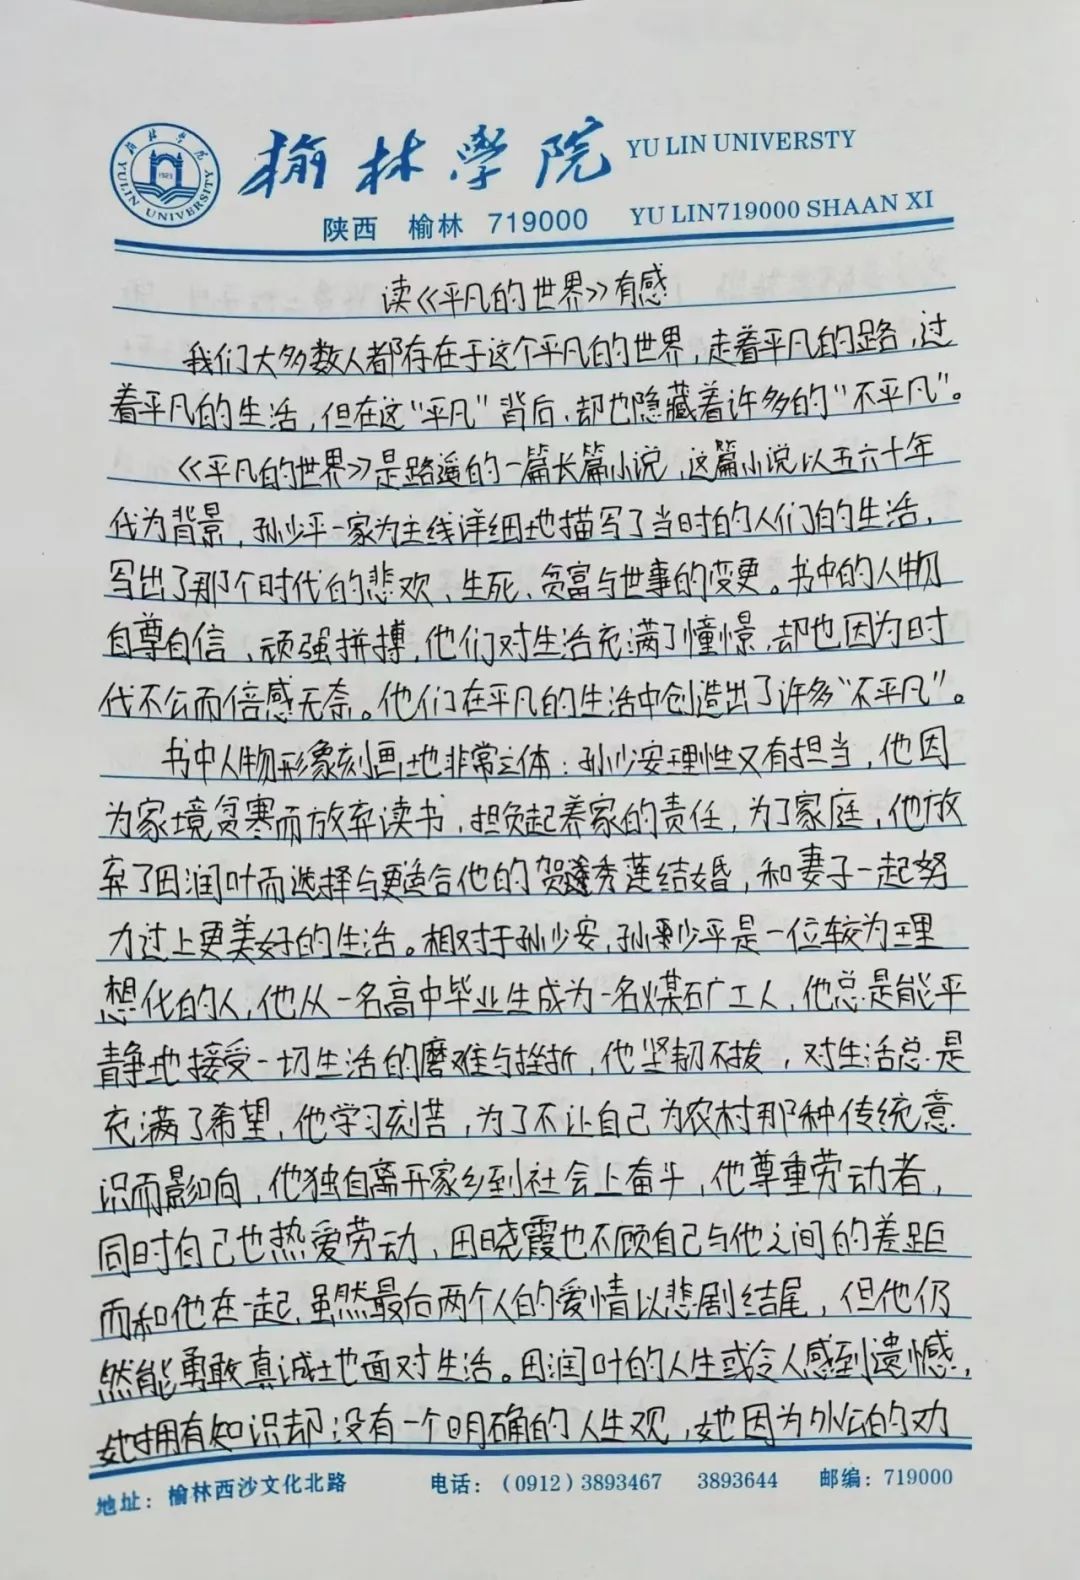 榆林学院 YU LIN UNIVERSTY
陕西 榆林 719000 YU LIN719000 SHAAN XI
YULIN UNIVERSITY
读《平凡的世界》有感
我们大多数人都存在于这个平凡的世界，走着平凡的路，过
着平凡的生活，但在这“平凡”背后，却也隐藏着许多的“不平凡”。
《平凡的世界》是路遥的一篇长篇小说，这篇小说以五六十年
代为背景，孙少平一家为主线详细地描写了当时的人们的生活，
写出了那个时代的悲欢、生死、贫富与世事的变更。书中的人物
自尊自信、顽强拼搏，他们对生活充满了憧憬，却也因为时
代不公而倍感无奈。他们在平凡的生活中创造出了许多“不平凡”。
书中人物形象刻画地非常立体：孙少安理性又有担当，他因
为家境贫寒而放弃读书，担负起养家的责任，为了家庭，他放
弃了田润叶而选择与更适合他的贺秀莲结婚，和妻子一起努
力过上更美好的生活。相对于孙少安，孙少平是一位较为理
想化的人，他从一名高中毕业生成为一名煤矿工人，他总是能平
静地接受一切生活的磨难与挫折，他坚韧不拔，对生活总是
充满了希望，他学习刻苦，为了不让自己为农村那种传统意
识而影响，他独自离开家乡到社会上奋斗，他尊重劳动者，
同时自己也热爱劳动，田晓霞也不顾自己与他之间的差距
而和他在一起，虽然最后两个人的爱情以悲剧结尾，但他仍
然能勇敢真诚地面对生活。田润叶的人生或令人感到遗憾，
她拥有知识却没有一个明确的人生观，她因为外公的劝
地址：榆林西沙文化北路 电话：（0912）3893467 3893644 邮编：719000